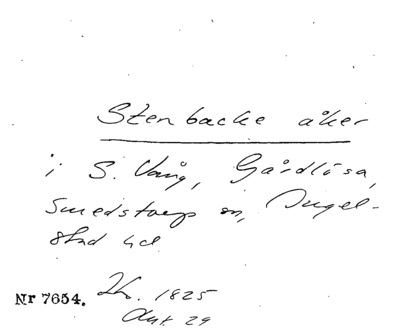 Stenbacke åker
i S. Vång, Gårdlösa,
Smedstorp sn, Ingel-
stad hd
Nr 7654. Lk. 1825
Akt 29